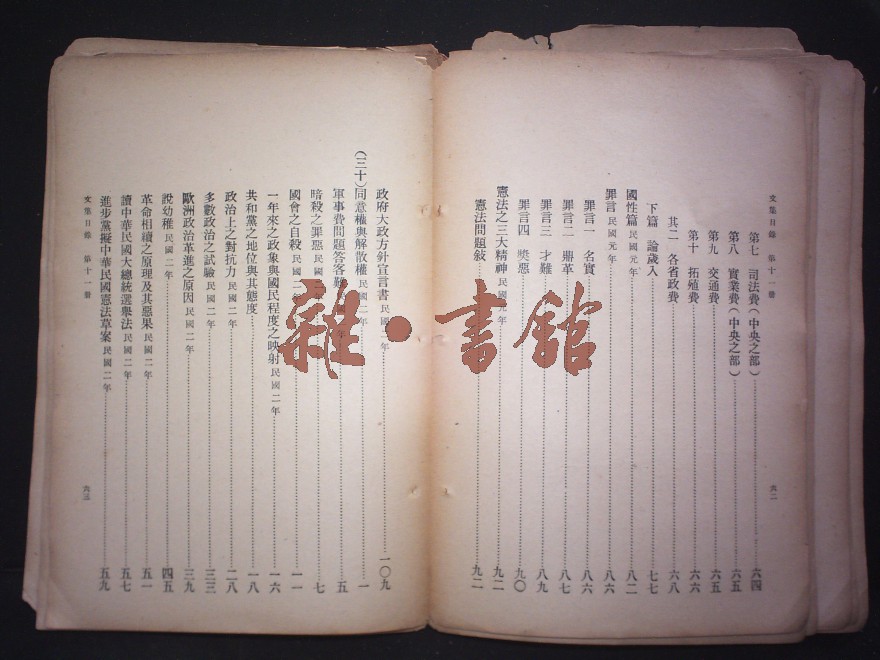 文集目錄 第十一册
第七 司法費(中央之部)……六四
第八 實業費(中央之部)……六五
第九 交通費……六五
第十 拓殖費……六六
其二 各省政費……六八
下篇 論歲入……七七
國性篇 民國元年……八二
罪言 民國元年……八六
罪言一 名實……八六
罪言二 鼎革……八七
罪言三 才難……八九
罪言四 獎惡……九〇
憲法之三大精神 民國元年……九二
憲法問題敍……九二
六二
政府大政方針宣言書 民國二年……一〇九
(三十)同意權與解散權 民國二年……一
軍事費問題答客難 民國二年……五
暗殺之罪惡 民國二年……七
國會之自殺 民國二年……一一
一年來之政象與國民程度之映射 民國二年……一六
共和黨之地位與其態度……一八
政治上之對抗力 民國二年……二八
多數政治之試驗 民國二年……三三
歐洲政治革進之原因 民國二年……三九
說幼稚 民國二年……四五
革命相續之原理及其惡果 民國二年……五一
讀中華民國大總統選舉法 民國二年……五七
進步黨擬中華民國憲法草案 民國二年……五九
文集目錄 第十一册
六三
雜·書館